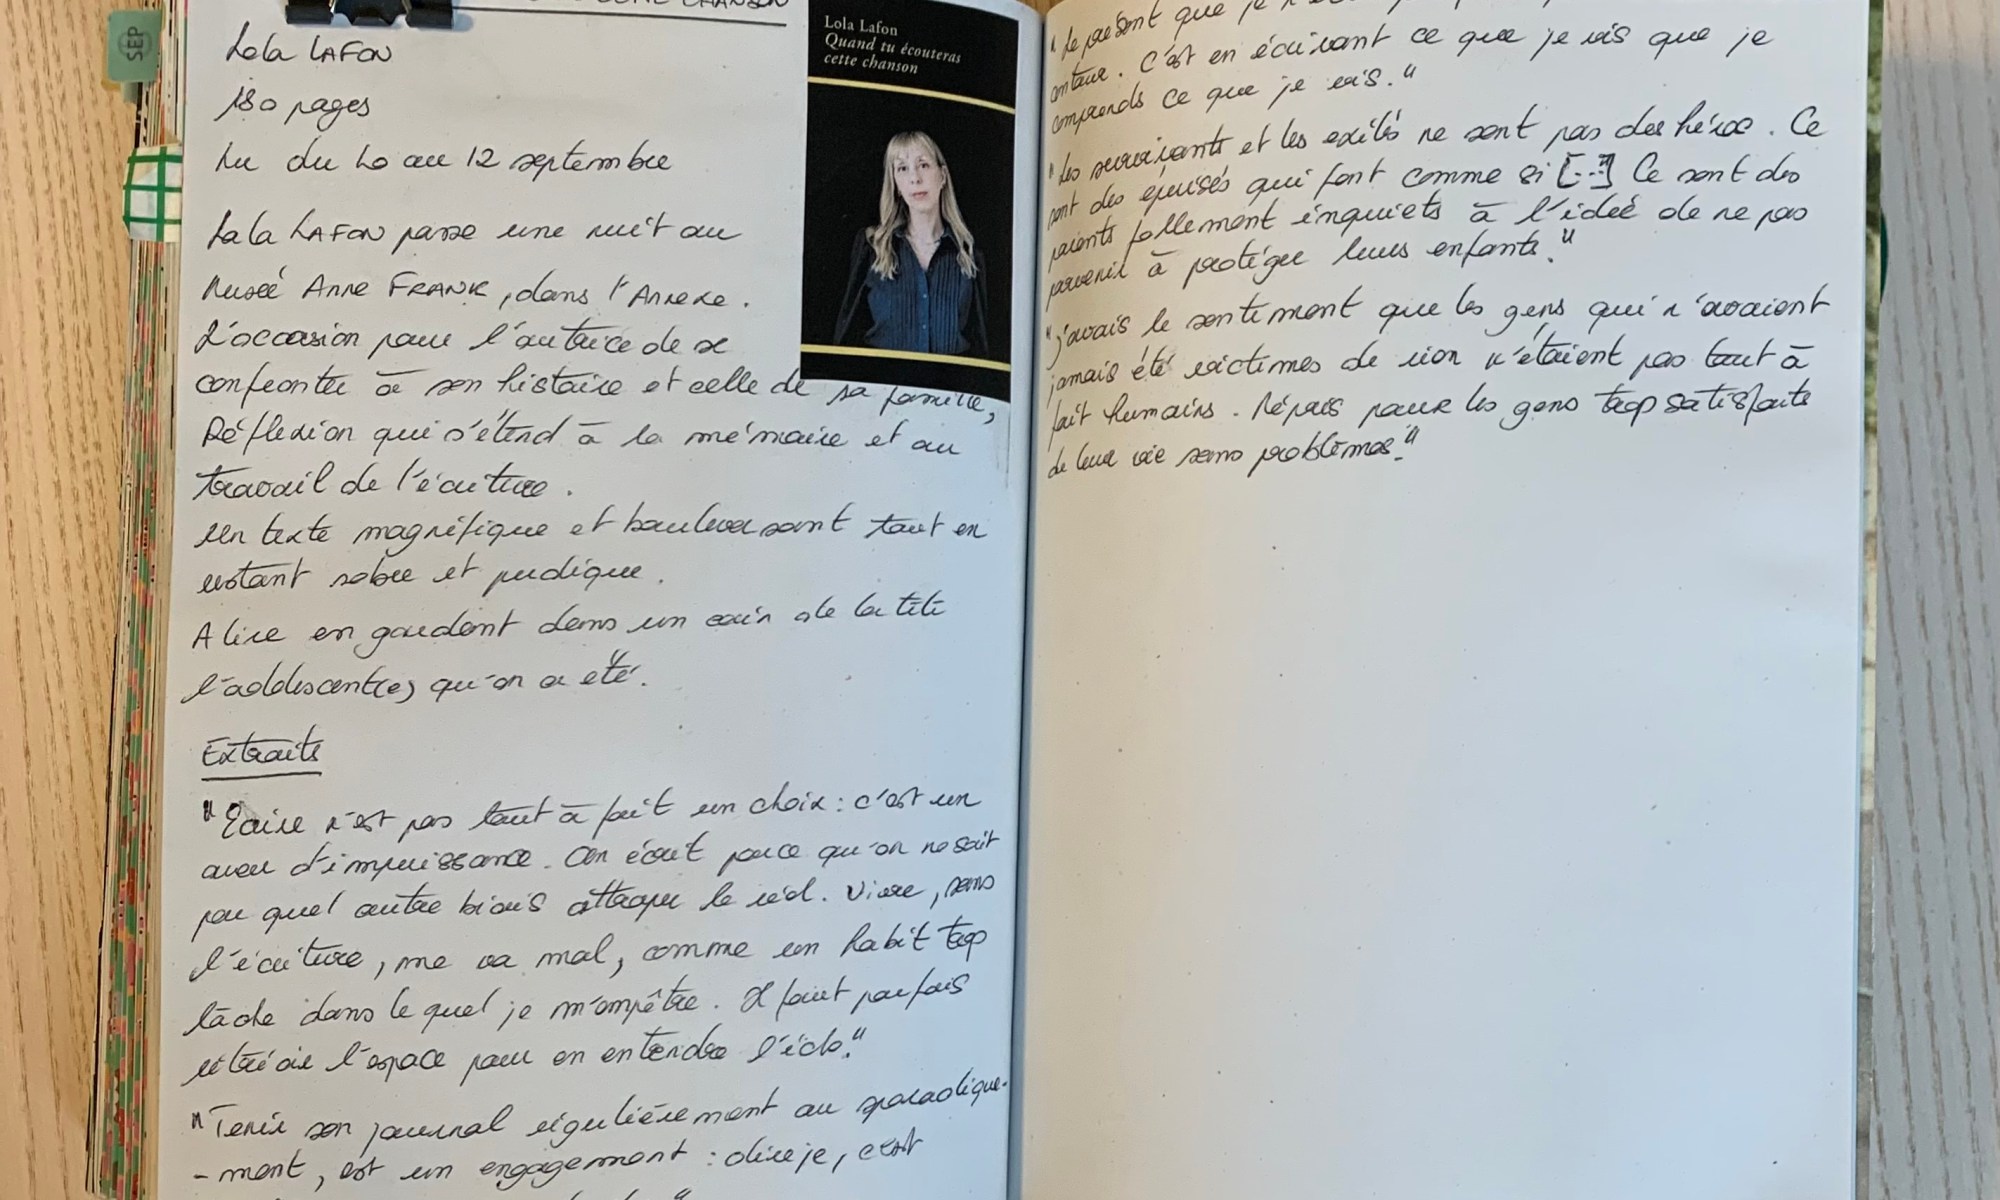 CHANSON
SEP
Lola LAFON
180 pages
Lu du 10 au 12 septembre
Lola LAFON passe une nuit au
Musée Anne FRANK, dans l'Annexe.
L'occasion pour l'autrice de se
confronter à son histoire et celle de sa famille,
Réflexion qui s'étend à la mémoire et au
travail de l'écriture.
Un texte magnifique et bouleversant tout en
restant sobre et pudique.
A lire en gardant dans un coin de la tête
l'adolescent(e) qu'on a été.
Extraits
"Ecrire n'est pas tout à fait un choix : c'est un
aveu d'impuissance. On écrit parce qu'on ne sait
par quel autre biais attraper le réel. Vivre, sans
l'écriture, me va mal, comme un habit trop
lâche dans le quel je m'empêtre. Il faut parfois
rétrécir l'espace pour en entendre l'écho."
"Tenir son journal régulièrement ou sporadique-
-ment, est un engagement : dire je, c'est
Lola Lafon
Quand tu écouteras
cette chanson
"Le présent que je
. C'est en écrivant ce que je vis que je
comprends ce que je vis."
"Les survivants et les exilés ne sont pas des héros. Ce
sont des épuisés qui font comme si [...] Ce sont des
parents follement inquiets à l'idée de ne pas
parvenir à protéger leurs enfants."
"J'avais le sentiment que les gens qui n'avaient
jamais été victimes de rien n'étaient pas tout à
fait humains. Mépris pour les gens trop satisfaits
de leur vie sans problèmes."